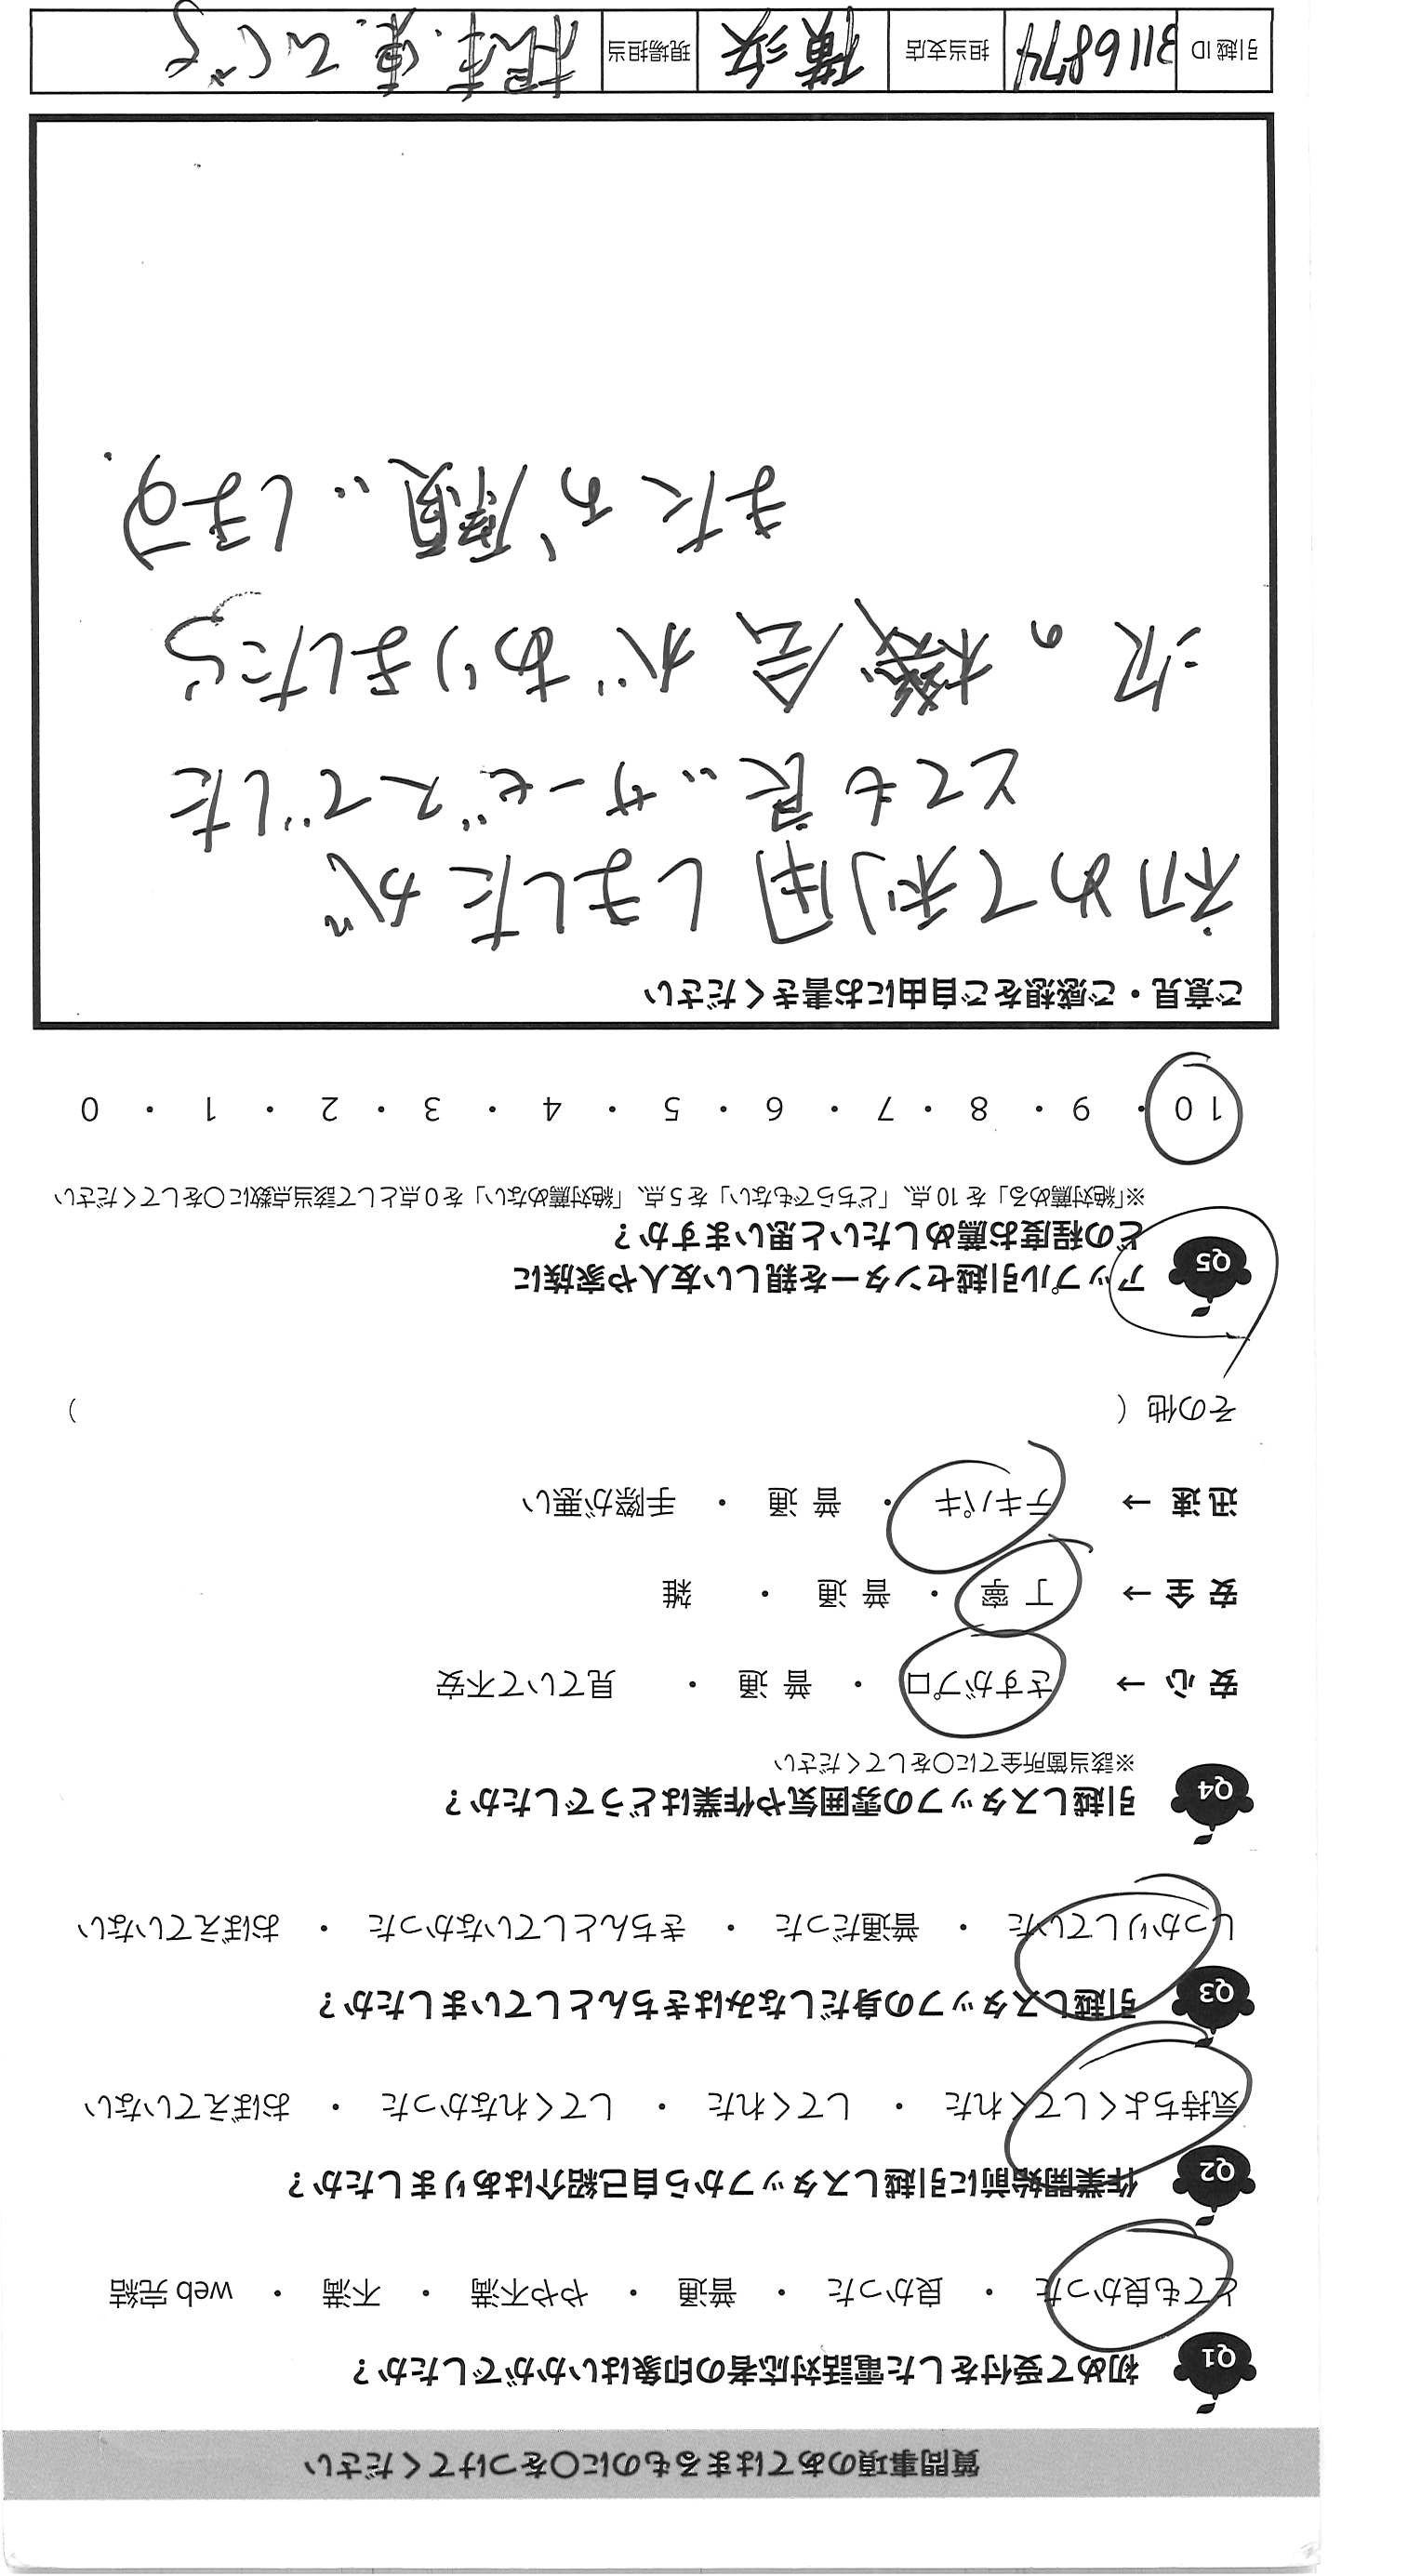 質問事項のあてはまるものに○をつけてください
Q1 初めて受付をした電話対応者の印象はいかがでしたか？
とても良かった ・ 良かった ・ 普通 ・ やや不満 ・ 不満 ・ web 完結
Q2 作業開始前に引越しスタッフから自己紹介はありましたか？
気持ちよくしてくれた ・ してくれた ・ してくれなかった ・ おぼえていない
Q3 引越しスタッフの身だしなみはきちんとしていましたか？
しっかりしていた ・ 普通だった ・ きちんとしていなかった ・ おぼえていない
Q4 引越しスタッフの雰囲気や作業はどうでしたか？
※該当箇所全てに○をしてください
安心 → さすがプロ ・ 普通 ・ 見ていて不安
安全 → 丁寧 ・ 普通 ・ 雑
迅速 → テキパキ ・ 普通 ・ 手際が悪い
その他（ ）
Q5 アップル引越センターを親しい友人や家族に
どの程度お薦めしたいと思いますか？
※「絶対薦める」を 10 点、「どちらでもない」を 5 点、「絶対薦めない」を 0 点として該当点数に○をしてください
10 ・ 9 ・ 8 ・ 7 ・ 6 ・ 5 ・ 4 ・ 3 ・ 2 ・ 1 ・ 0
ご意見・ご感想をご自由にお書きください
初めて利用しましたが
とても良いサービスでした
次の機会がありましたら
またお願いします.
引越 ID 3116874 担当支店 横浜 現場担当